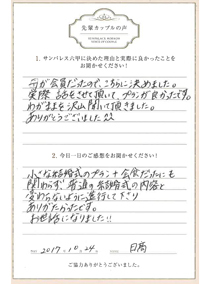 先輩カップルの声
1. サンパレス六甲に決めた理由と実際に良かったことを
お聞かせください！
母が会員だったので、こちらに決めました。
実際、話をさせて頂いて、プランが良かったです。
わがままを沢山聞いて頂きました。
ありがとうございました
2. 今日一日のご感想をお聞かせください！
小さな結婚式のプラン＋会食だったにも
関わらず、普通の結婚式の内容と
変わらないように進行して下さり
ありがたかったです。
お世話になりました!!
2017. 10. 24.
ご協力ありがとうございました。